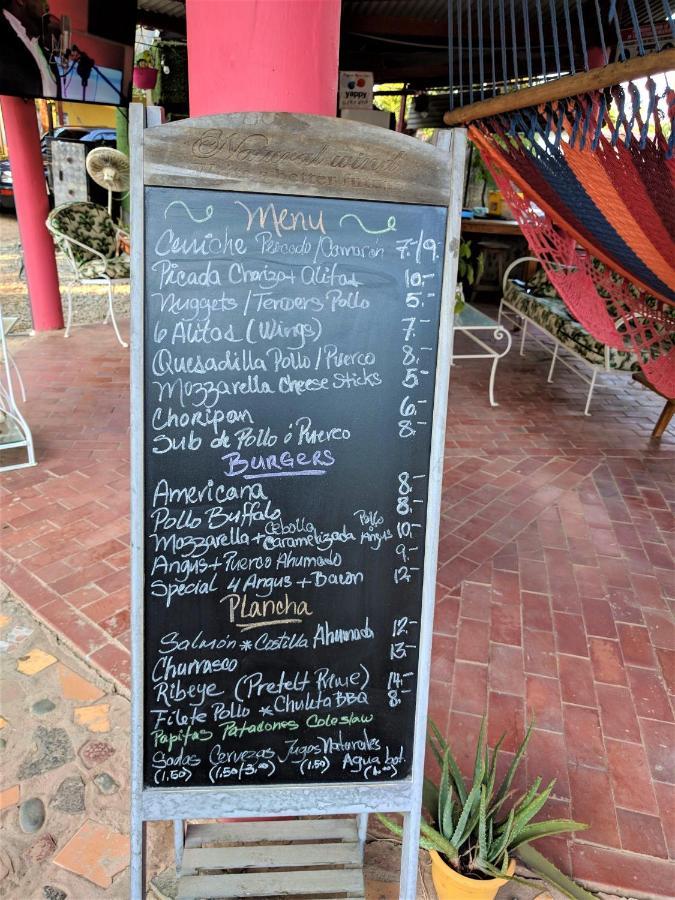 Natural wind
better time
yappy
Menu
Ceviche Pescado/Camarón 7.-/9.
Picada Chorizo + Alitas 10.-
Nuggets/Tenders Pollo 5.-
6 Alitas (Wings) 7.-
Quesadilla Pollo/Puerco 8.-
Mozzarella Cheese Sticks 5.-
Choripan 6.-
Sub de Pollo ó Puerco 8.-
BURGERS
Americana 8.-
Pollo Buffalo 8.-
Mozzarella + Cebolla Caramelizada Pollo Angus 10.-
Angus + Puerco Ahumado 9.-
Special 4 Angus + Bacon 12.-
Plancha
Salmón * Costilla Ahumada 12.-
Churrasco 13.-
Ribeye (Pretelt Prime) 14.-
Filete Pollo * Chuleta BBQ 8.-
Papitas Patacones Coleslaw
Sodas Cervezas Jugos Naturales Agua bot.
(1.50) (1.50/3.00) (1.50) (1.00)